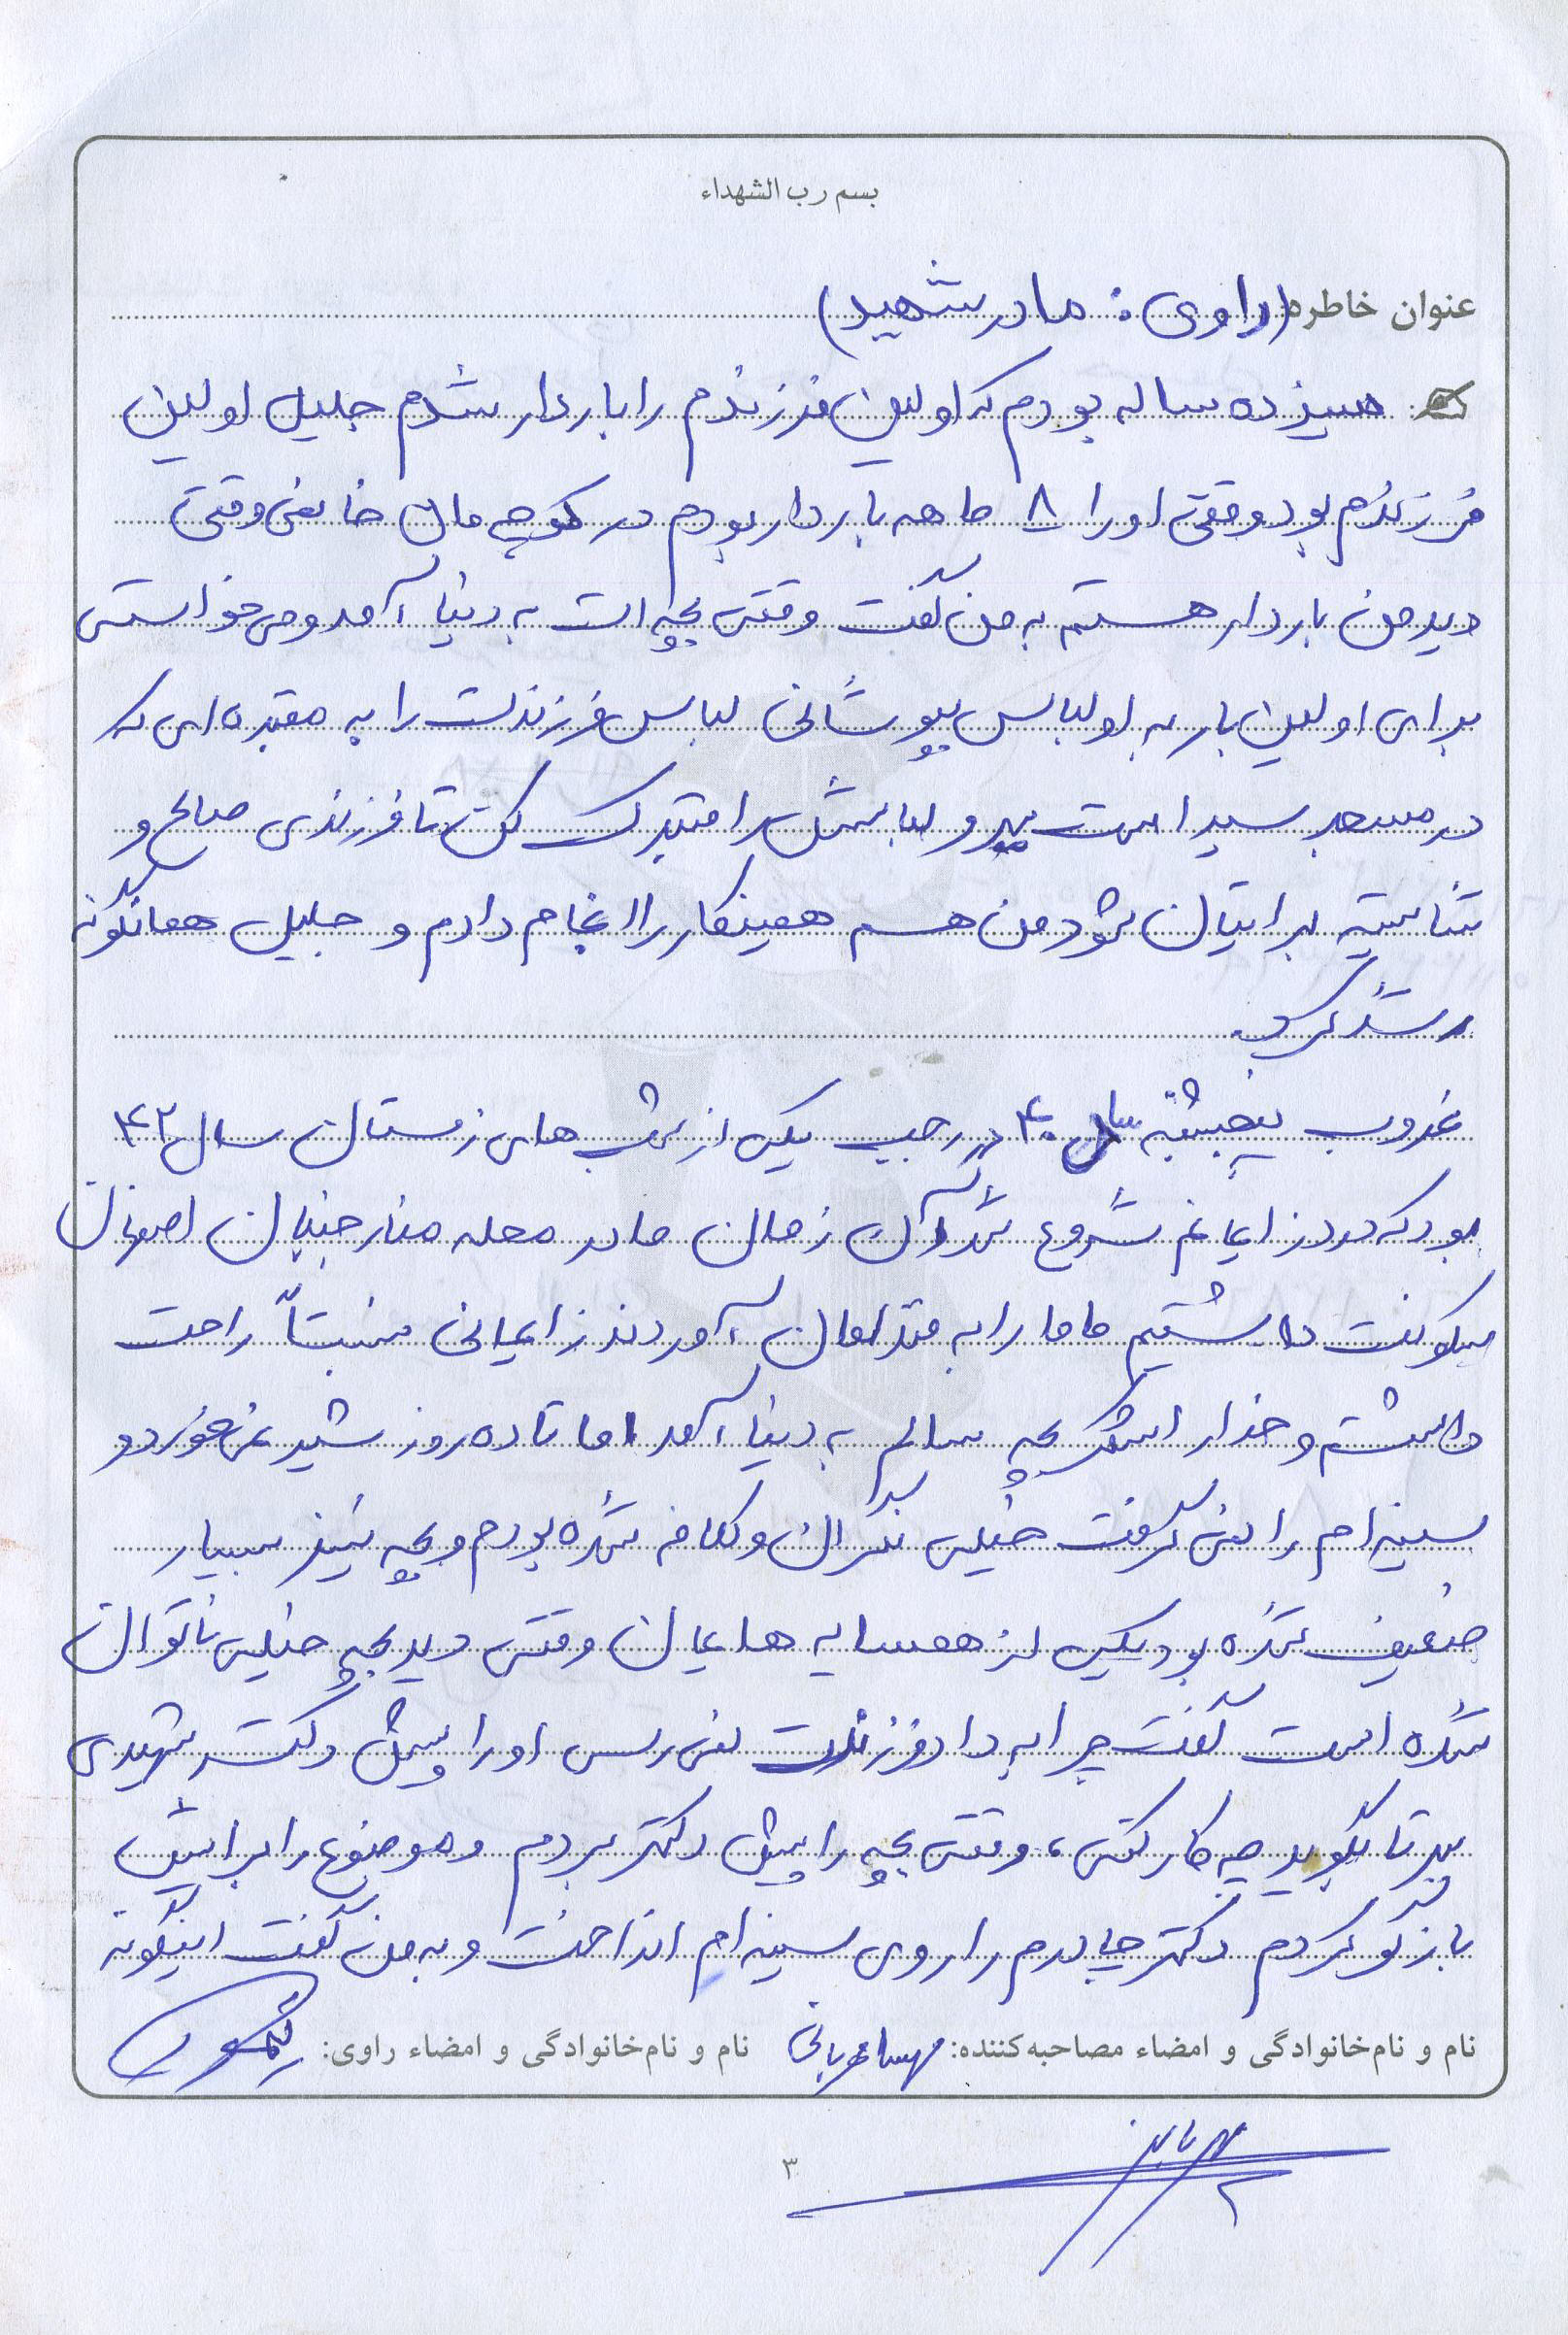 بسم رب الشهداء
عنوان خاطره (راوی: مادر شهید)
سیزده ساله بودم که اولین فرزندم را باردار شدم جلیل اولین
فرزندم بود وقتی او را ۸ ماهه باردار بودم در کوچه مان خانمی وقتی
دید من باردار هستم به من گفت وقتی بچه ات به دنیا آمد و می خواستی
برای اولین بار به او لباس بپوشانی لباس فرزندت را به مقبره ای که
در مسجد سید است ببر و لباسش را متبرک کن تا فرزندی صالح و
شایسته برایتان شود من هم همینکار را انجام دادم و جلیل همانگونه
رشد کرد
غروب پنجشنبه سال ۴۰ در رجب یکی از شب های زمستان سال ۴۲
بود که درد زایمانم شروع شد آن زمان ما در محله منار جنبان اصفهان
سکونت داشتیم ماما را به منزلمان آوردند زایمانی نسبتاً راحت
داشتم و خدا را شکر بچه سالم به دنیا آمد اما تا ده روز شیر نمی خورد و
سینه ام را نمی گرفت خیلی نگران و کلافه شده بودم و بچه نیز بسیار
ضعیف شده بود یکی از همسایه هایمان وقتی دید بچه خیلی ناتوان
شده است گفت چرا به داد فرزندت نمی رسی او را پیش دکتر شهیدی
ببر تا بگوید چه کار کنی، وقتی بچه را پیش دکتر بردم و موضوع را برایش
بازگو کردم دکتر چادرم را روی سینه ام انداخت و به من گفت اینگونه
نام و نام‌خانوادگی و امضاء مصاحبه‌کننده: مهسا مهربانی نام و نام‌خانوادگی و امضاء راوی:
۳